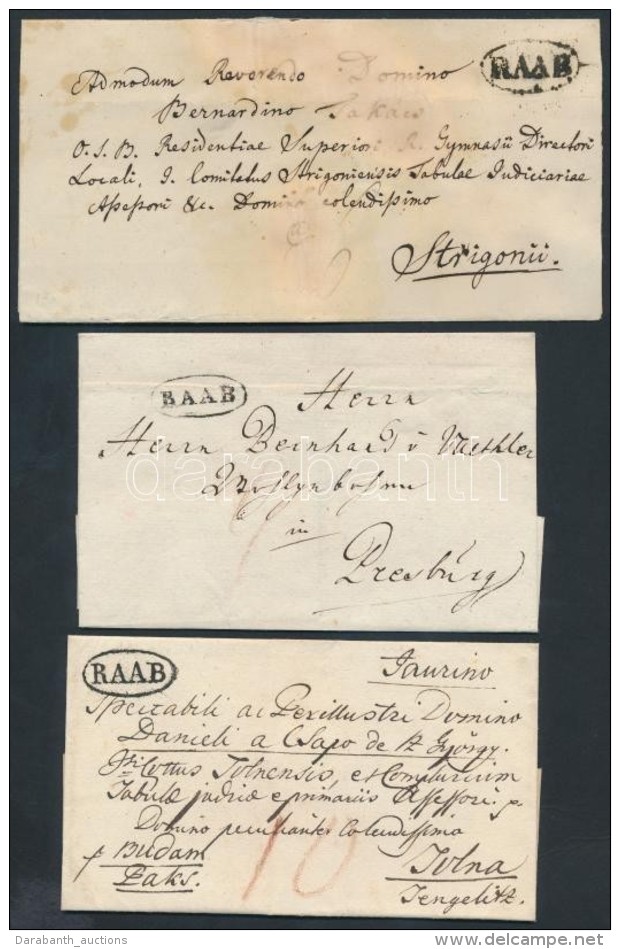 RAAB
Admodum Reverendo Domino
Bernardino Takács
O. S. B. Residentiae Superiori R. Gymnasii Directori
Locali, I. Comitatus Strigoniensis Tabulae Judiciariae
Assessori &c. Domino colendissimo
Strigonii.
RAAB
Herrn
Herrn Bernhard v
in
Presburg
darabanth
RAAB
Jaurino
Spectabili ac Perillustri Domino
Danieli a Csapo de Sz György.
Cottus Tolnensis, et Complurium
Tabulæ judriæ primariis Assessori. p.
Domino peculiariter Colendissimo
p Budam
Paks.
Tolna
Tengelitz.
10
Darabanth_auctions
delcampe.net